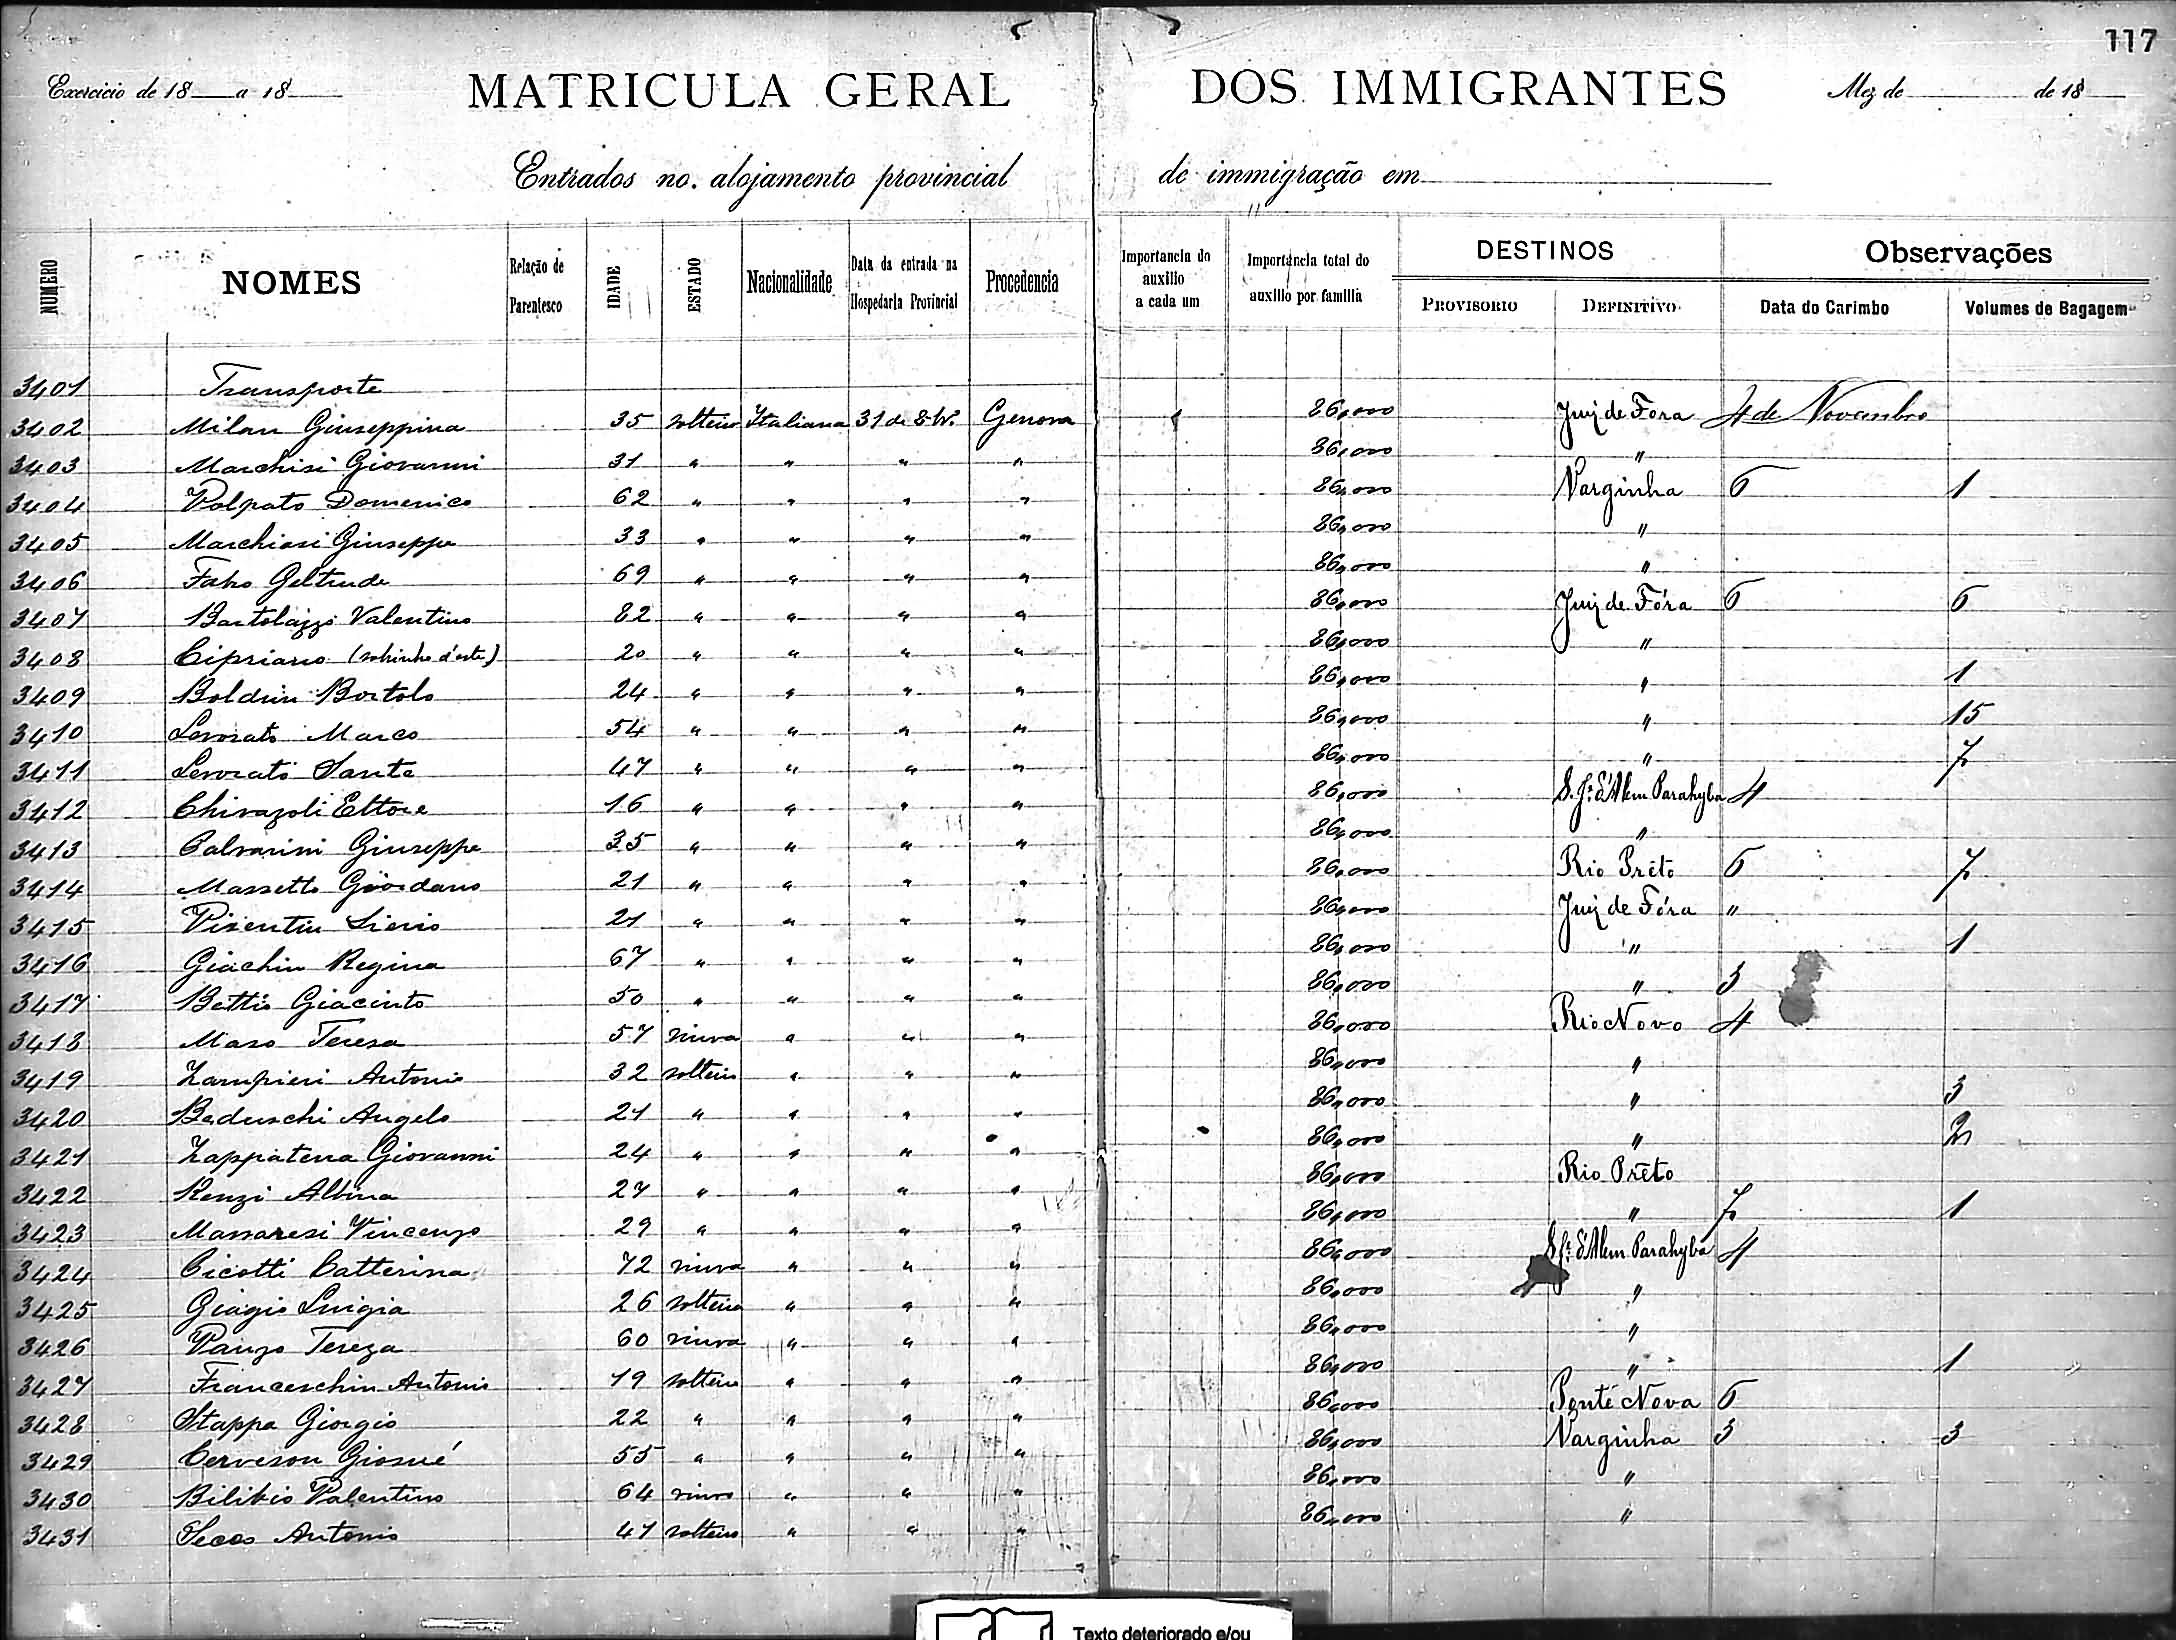 117
Exercicio de 18 a 18 MATRICULA GERAL DOS IMMIGRANTES Mez de de 18
Entrados no alojamento provincial de immigração em
NUMERO NOMES Relação de Parentesco IDADE ESTADO Nacionalidade Data da entrada na Hospedaria Provincial Procedencia Importancia do auxilio a cada um Importancia total do auxilio por familia DESTINOS PROVISORIO DEFINITIVO Observações Data do Carimbo Volumes de Bagagem
3401 Transporte
3402 Milan Giuseppina 35 solteira Italiana 31 de 8bro. Genova 86,000 Juiz de Fora 4 de Novembro
3403 Marchisi Giovanni 31 " " " " 86,000 "
3404 Volpato Domenico 62 " " " " 86,000 Varginha 6 1
3405 Marchiosi Giuseppe 33 " " " " 86,000 "
3406 Geltrude 69 " " " " 86,000 "
3407 Bartolazzi Valentino 82 " " " " 86,000 Juiz de Fóra 6 6
3408 Cipriano (sobrinho d'este) 20 " " " " 86,000 "
3409 Boldrin Bortolo 24 " " " " 86,000 " 1
3410 Levorato Marco 54 " " " " 86,000 " 15
3411 Levorato Sante 47 " " " " 86,000 " 7
3412 Chivazoli Ettore 16 " " " " 86,000 S. Je. d'Alem Parahyba 4
3413 Calvarini Giuseppe 35 " " " " 86,000 "
3414 Massetto Giordano 21 " " " " 86,000 Rio Prêto 6 7
3415 Visentin 21 " " " " 86,000 Juiz de Fóra "
3416 Giachin Regina 67 " " " " 86,000 " 1
3417 Bettio Giacinto 50 " " " " 86,000 " 3
3418 Maso Teresa 57 viuva " " " 86,000 Rio Novo 4
3419 Zampieri Antonio 32 solteiro " " " 86,000 "
3420 Beduschi Angelo 21 " " " " 86,000 " 3
3421 Zappaterra Giovanni 24 " " " " 86,000 " 2
3422 Renzi Albina 27 " " " " 86,000 Rio Prêto
3423 Massaresi Vincenzo 29 " " " " 86,000 " 7 1
3424 Cicotti Catterina 72 viuva " " " 86,000 S. Je. d'Alem Parahyba 4
3425 Giagio Luigia 26 solteira " " " 86,000 "
3426 Tereza 60 viuva " " " 86,000 "
3427 Franceschin Antonio 19 solteiro " " " 86,000 " 1
3428 Stappa Giorgio 22 " " " " 86,000 Ponte Nova 6
3429 Cerveson Giosué 55 " " " " 86,000 Varginha 3 3
3430 Bilibio Valentino 64 viuvo " " " 86,000 "
3431 Antonio 47 solteiro " " " 86,000 "
Texto deteriorado e/ou